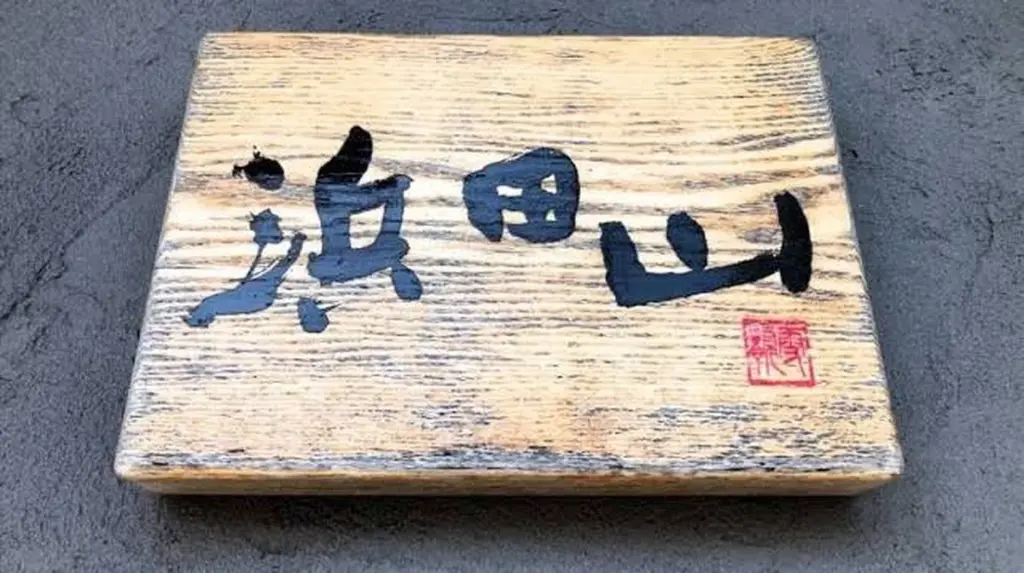 浜田山